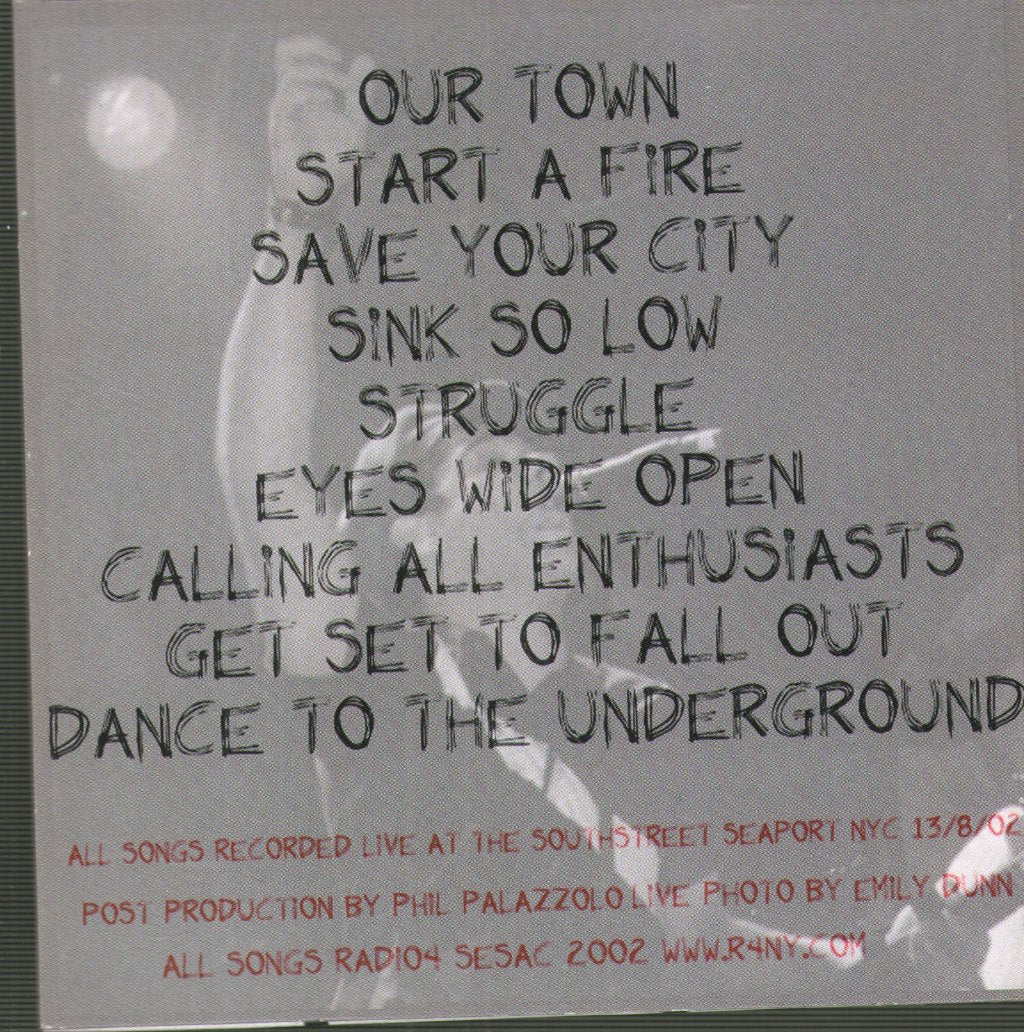 OUR TOWN
START A FiRE
SAVE YOUR CiTY
SiNK SO LOW
STRUGGLE
EYES WiDE OPEN
CALLiNG ALL ENTHUSiASTS
GET SET TO FALL OUT
DANCE TO THE UNDERGROUND
ALL SONGS RECORDED LIVE AT THE SOUTHSTREET SEAPORT NYC 13/8/02
POST PRODUCTION BY PHIL PALAZZOLO LIVE PHOTO BY EMILY DUNN
ALL SONGS RADIO4 SESAC 2002 WWW.R4NY.COM